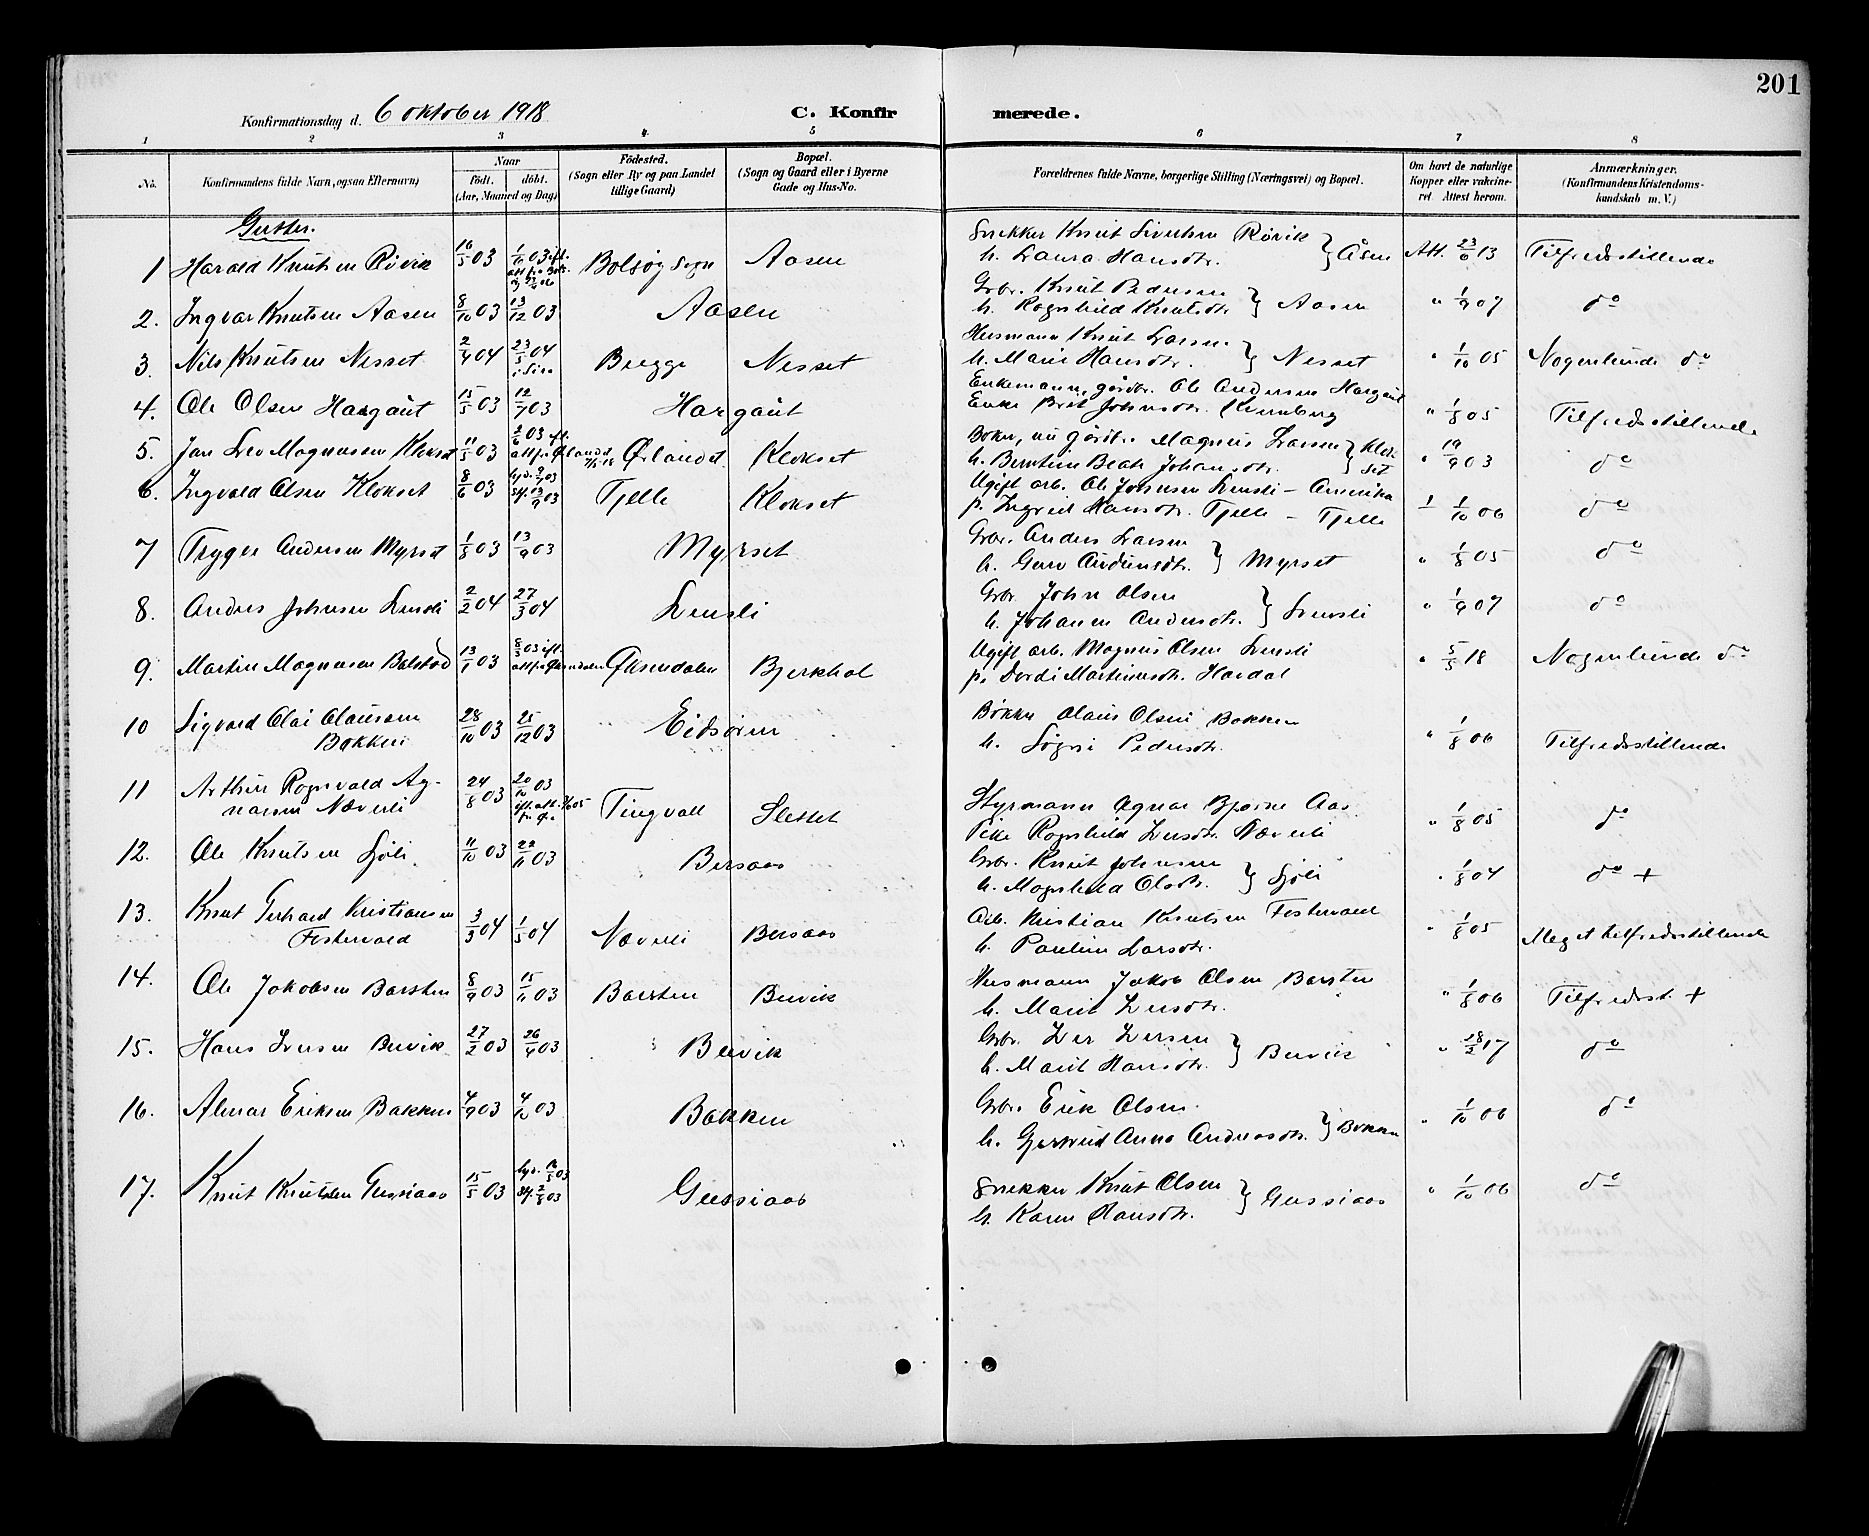 201
Konfirmationsdag d. 6 oktober 1918 C. Konfirmerede.
1 2 3 4 5 6 7 8
No. Konfirmandens fulde Navn, ogsaa Efternavn) Naar födt. döbt. (Aar, Maaned og Dag) Födested. (Sogn eller By og paa Landet tillige Gaard) Bopæl. (Sogn og Gaard eller i Byerne Gade og Hus-No. Forældrenes fulde Navne, borgerlige Stilling (Næringsvei) og Bopæl. Om havt de naturlige Kopper eller vakcineret Attest herom. Anmærkninger. (Konfirmandens Kristendomskundskab m. V.)
Gutter.
1 Harald Knutsen Røvik 16/5 03 1/11 03 ifl. att. fra Bols. Bolsøy Sogn Aasen Snekker Knut Sivertsen Røvik h. Laura Hansdtr. } Åsen Att. 23/6 13 Tilfredsstillende
2. Ingvar Knutsen Aasen 8/10 03 13/12 03 Aasen Gbr. Knut Pedersen h. Ragnhild Knutsdtr. } Aasen " 1/9 07 do
3. Nils Knutsen Nesset 2/4 04 23/5 04 i Sira Bugge Nesset Husmann Knut Larsen h. Marie Hansdtr. } Nesset " 1/10 05 Nogenlunde do
4. Ole Olsen Hargaut 15/5 03 12/7 03 Hargaut Enkemann, gårdbr. Ole Andersen Hargaut Enke Brit Johnsdtr. " 1/8 05 Tilfredsstillende
5. Jan Leo Magnussen Klokset 11/5 03 2/6 03 ifl. att. fra Ørlandet Ørlandet Klokset Baker, nu gårdbr. Magnus Larsen h. Berntine Beate Johansdtr. } Klokset " 19/9 03 do
6. Ingvald Olsen Klokset 8/6 03 hjd. 9/7 03 stf. 13/9 03 Tjelle Klokset Ugift arb. Ole Johnsen Lensli - Amerika p. Ingrid Hansdtr. Tjelle - Tjelle " 1/10 06 do
7 Trygve Andersen Myrset 1/8 03 13/9 03 Myrset Gbr. Anders Larsen h. Guro Audunsdtr. } Myrset " 1/8 05 do
8. Anders Johnsen Lensli 2/2 04 27/3 04 Lensli Gbr. John Olsen h. Johanne Andersdtr. } Lensli " 1/9 07 do
9. Martin Magnussen Bolstad 13/1 03 8/3 03 ifl. att. fra Øksendalen Øksendalen Bjerkhol Ugift arb. Magnus Olsen Lensli p. Dordi Martinusdtr. Hardal " 5/5 18 Nogenlunde do
10 Sigvard Olai Olaussen Bakken 28/10 03 25/12 03 Eidsøren Bøkker Olaus Olsen Bakken h. Søgni Pedersdtr. " 1/8 06 Tilfredsstillende
11 Arthur Ragnvald Agnarsen Næverli 24/8 03 20/10 03 ifl. att. Tingvoll Slettet Styrmann Agnar Bjarne Aas Pike Ragnhild Iversdtr. Næverli " 1/8 05 do
12. Ole Knutsen Sjøli 11/10 03 22/11 03 Bersaas Gbr. Knut Johnsen h. Magnhild Olsdtr. } Sjøli " 1/8 04 do +
13. Knut Gerhard Kristiansen Fostervold 3/3 04 1/5 04 Næverli Bersaas Arb. Kristian Knutsen Fostervold h. Pauline Larsdtr. " 1/8 05 Meget tilfredsstillende
14. Ole Jakobsen Barsten 8/9 03 15/11 03 Barsten Buvik Husmann Jakob Olsen Barsten h. Marit Iversdtr. " 1/8 06 Tilfredsst. +
15. Hans Iversen Buvik 27/2 03 26/4 03 Buvik Gbr. Iver Iversen h. Marit Hansdtr. } Buvik " 28/2 17 do
16. Almar Eriksen Bakken 4/9 03 4/10 03 Bakken Gbr. Erik Olsen h. Gjertrud Anna Andreasdtr. } Bakken " 1/10 06 do
17. Knut Knutsen Gussiaas 15/5 03 hjd. 16/5 03 stf. 2/8 03 Gussiaas Snekker Knut Olsen h. Karen Hansdtr. } Gussiaas " 1/10 06 do